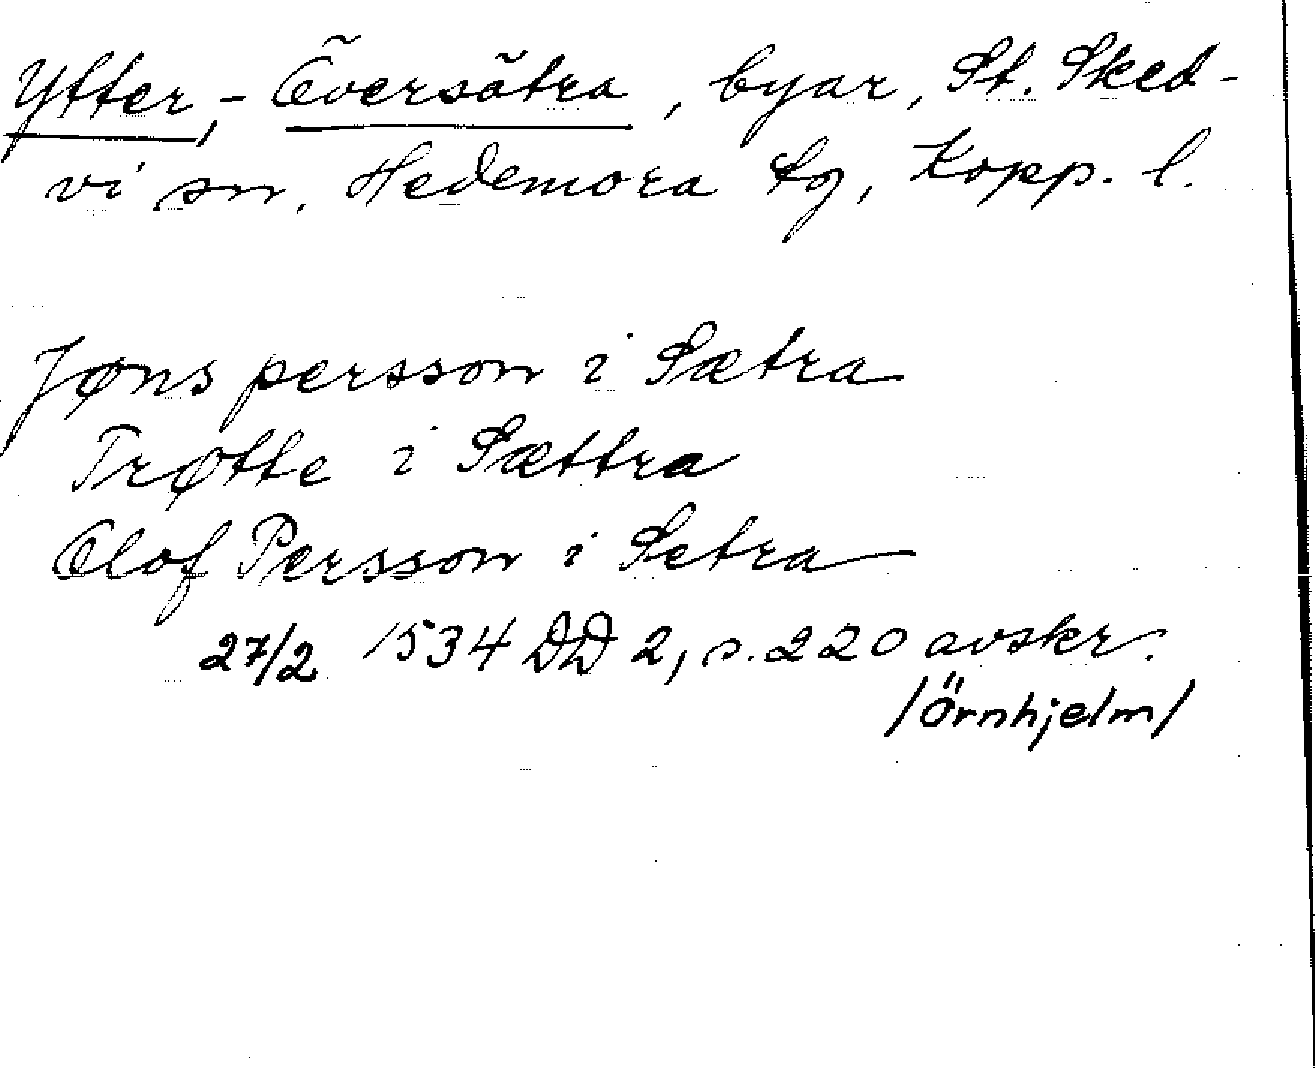 Ytter,- Översätra, byar, St. Sked-
vi sn. Hedemora tg, Kopp. l.
Jøns persson i Sætra
Trøtte i Sættra
Olof Persson i Setra
27/2 1534 DD 2, s. 220 avskr.
/Örnhjelm/